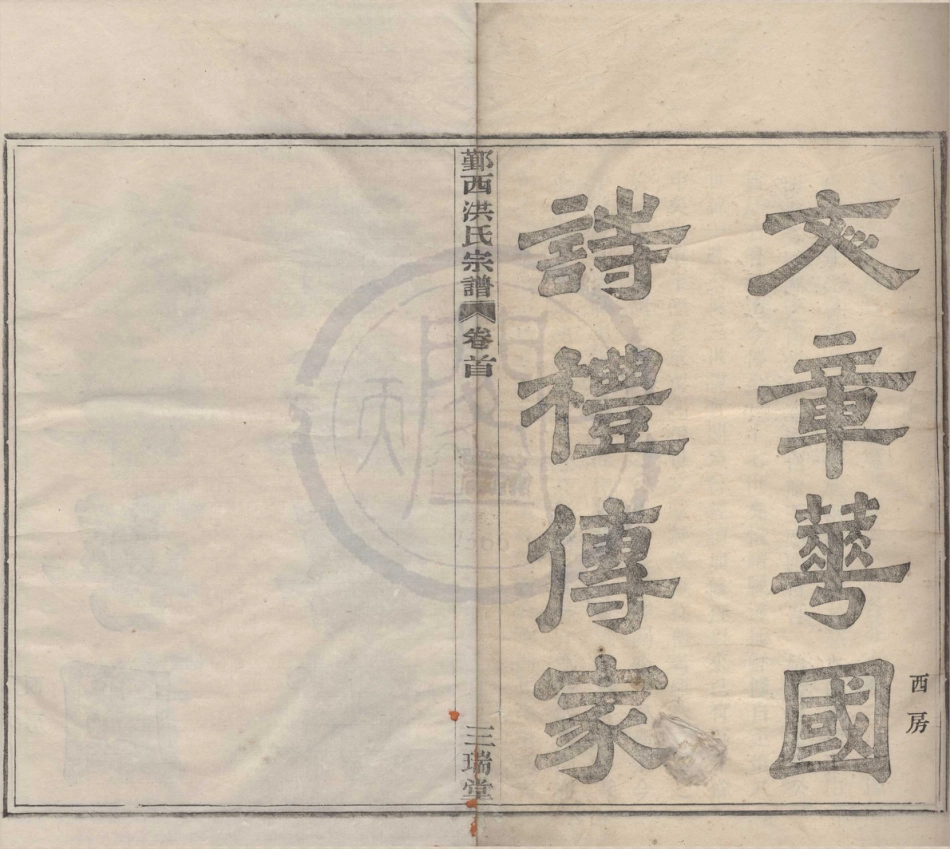 文章華國
西房
詩禮傳家
鄞西洪氏宗譜
卷首
三瑞堂